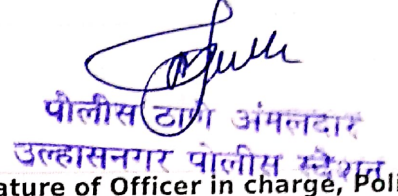 पोलीस ठाणे अंमलदार
उल्हासनगर पोलीस स्टेशन
ature of Officer in charge, Poli